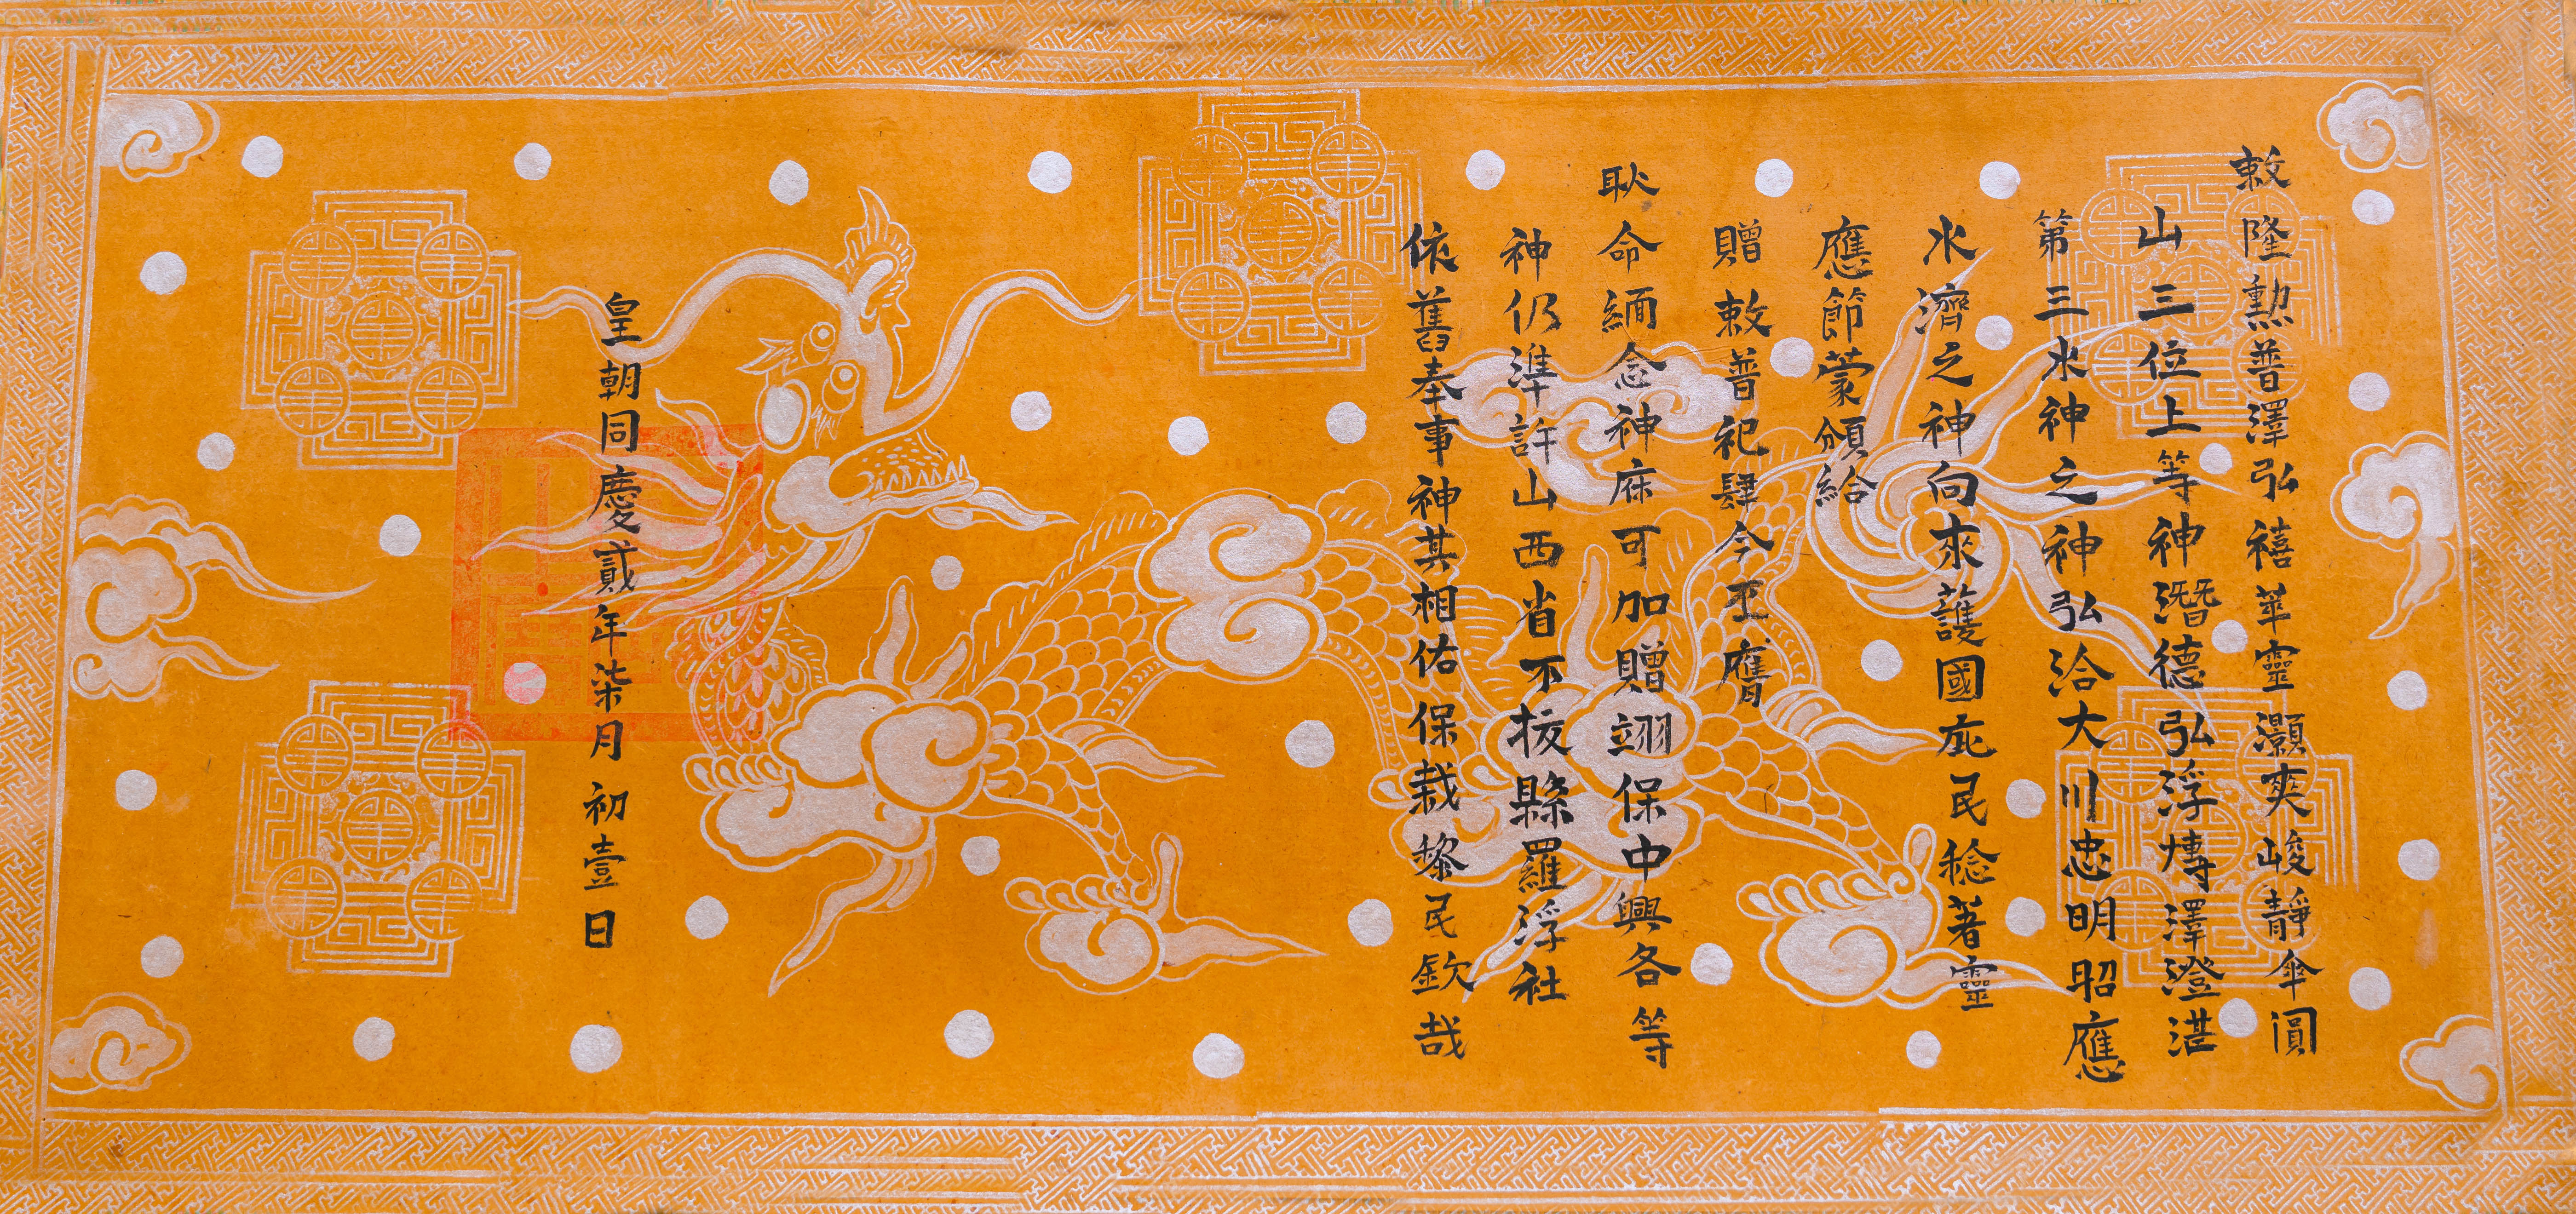 敕隆勲普澤弘禧華靈灝爽峻靜傘圓
山三位上等神潛德弘浮博澤澄湛
第三水神之神弘洽大川忠明昭應
水濟之神向來護國庇民稔著靈
應節蒙頒給
贈敕普祀肆今丕膺
耿命緬念神庥可加贈翊保中興各等
神仍準許山西省不拔縣羅浮社
依舊奉事神其相佑保我黎民欽哉
皇朝同慶貳年柒月初壹日